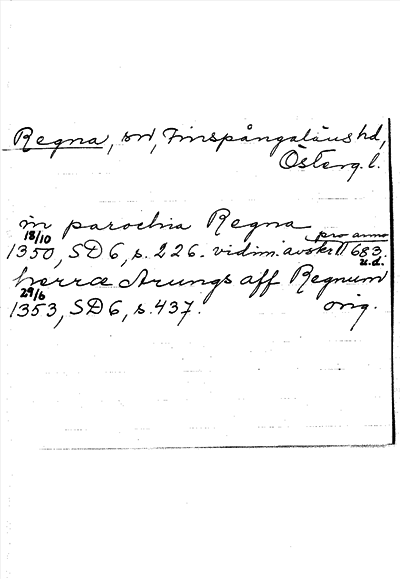 Regna, sn, Finspångaläns hd,
Österg. l.
in parochia Regna
18/10 pro anno
1350, SD 6, s. 226. vidim. avskr. 683.
u.d.
herra Arungs aff Regnum
29/6
1353, SD 6, s. 437. orig.